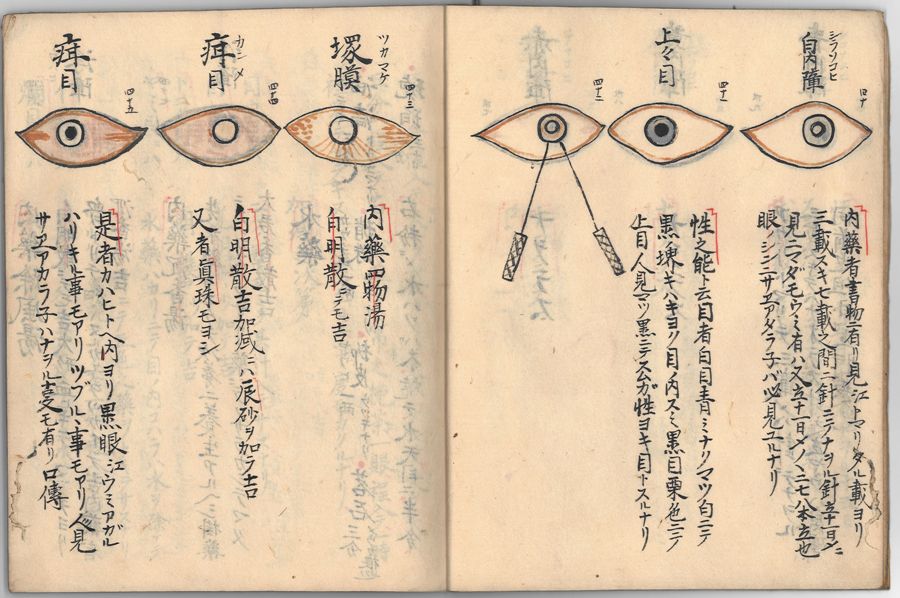 シラソコヒ
白内障
四十
内藥者書物ニ有リ見江上マリタル載ヨリ
三載スキ七載之間ニ針ニテナヲル針立十一日メニ
見ニマダモウミ有ハ又立十一日メノ二七八本立也
眼ノシンニサエアタラ子バ必見ユルナリ
上々目
四十一
四十二
性之能ト云目者白目青ミナリマツ白ニテ
黒ノ堺キハキヨク目ノ内スミ黒目栗色ニテ
上目人見マツ黒ニテスムガ性ヨキ目トスルナリ
ツカマケ
塚膜
四十三
内藥四物湯
白明散ニテモ吉
カシメ
目
四十四
白明散吉加減ニハ辰砂ヲ加ラ吉
又者眞珠モヨシ
目
四十五
是者カハヒト内ヨリ黒眼江ウミアガル
ハリキル事モアリツブルヽ事モアリ人見
サエアカラ子ハナヲル事モ有リ口傳